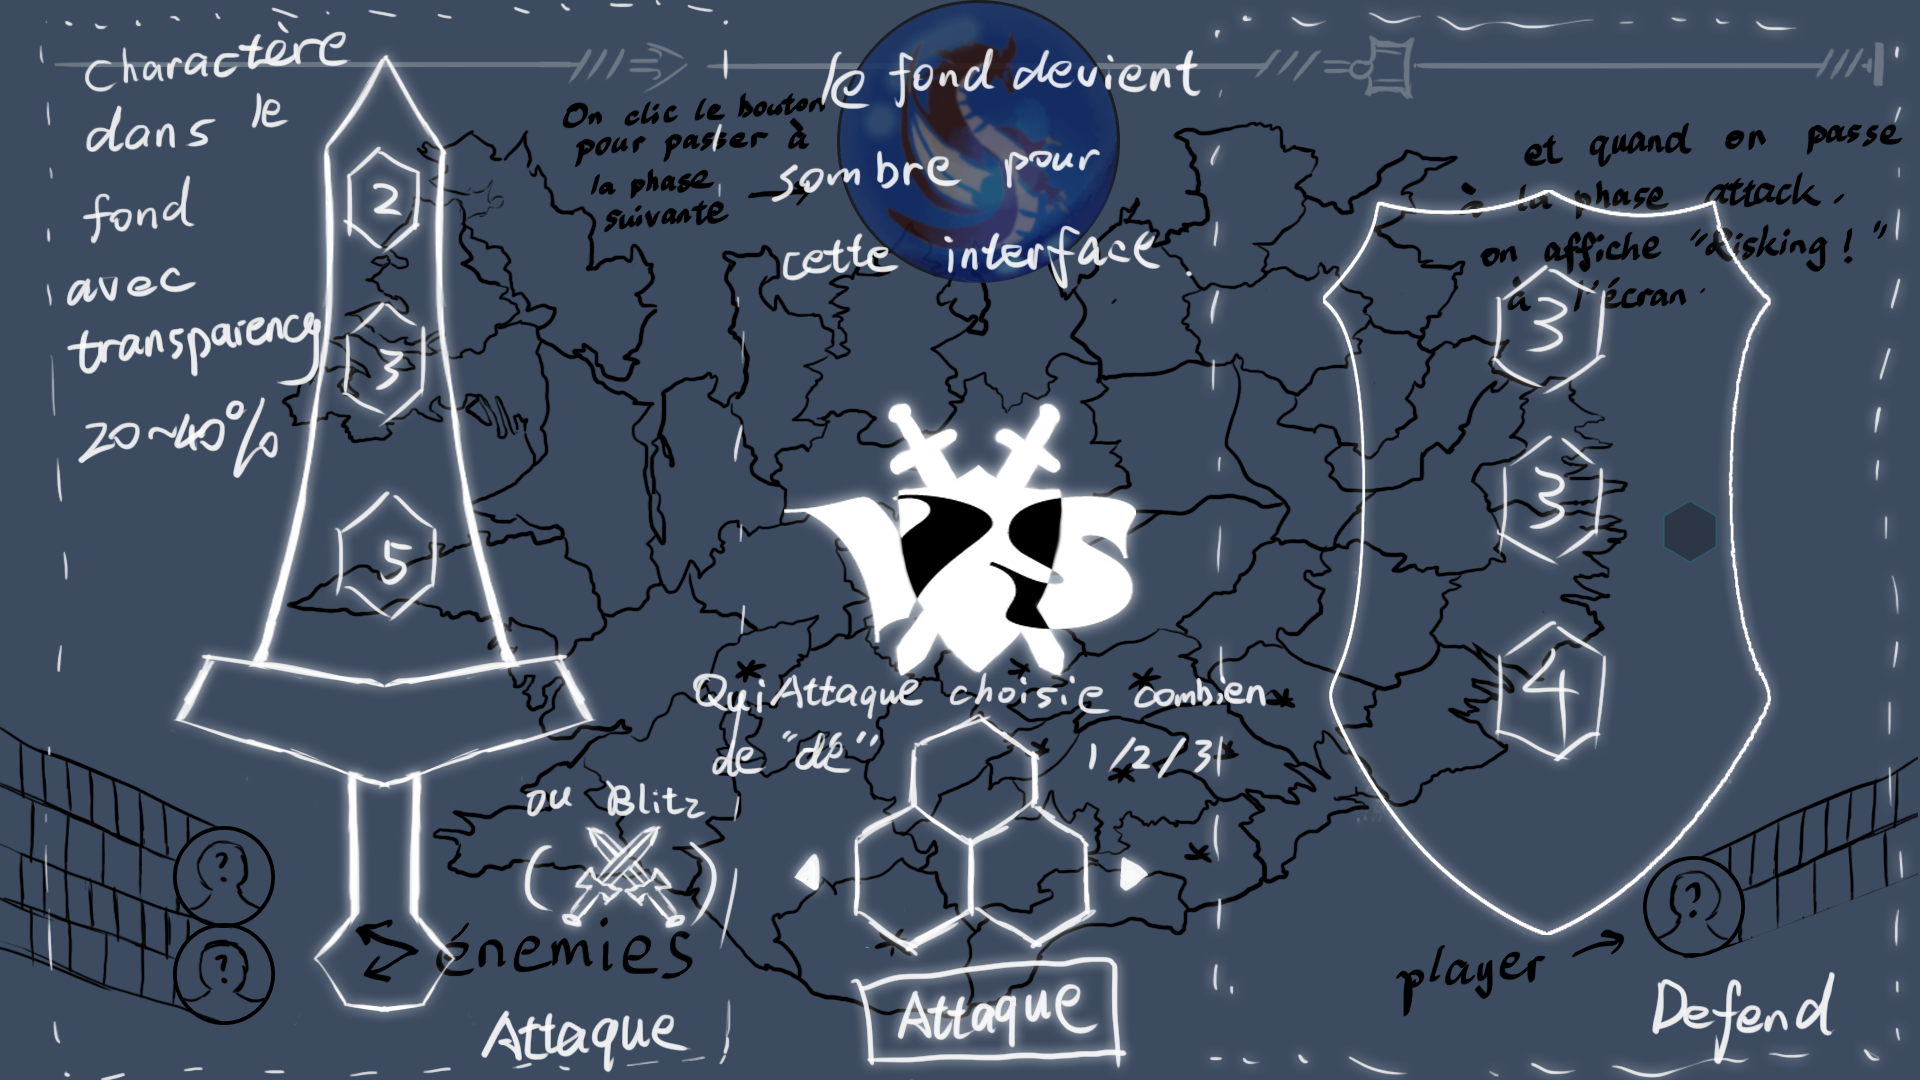 Charactère
dans le
fond
avec
transpaiency
20~40%
2
3
5
On clic le bouton
pour passer à
la phase
suivante
le fond devient
sombre pour
cette interface.
et quand on passe
à la phase attack,
on affiche "Risking!"
à l'écran.
3
3
4
VS
Qui Attaque choisie combien
de "dé" 1/2/3
ou Blitz
( )
?
?
énemies
Attaque
Attaque
player
?
Defend